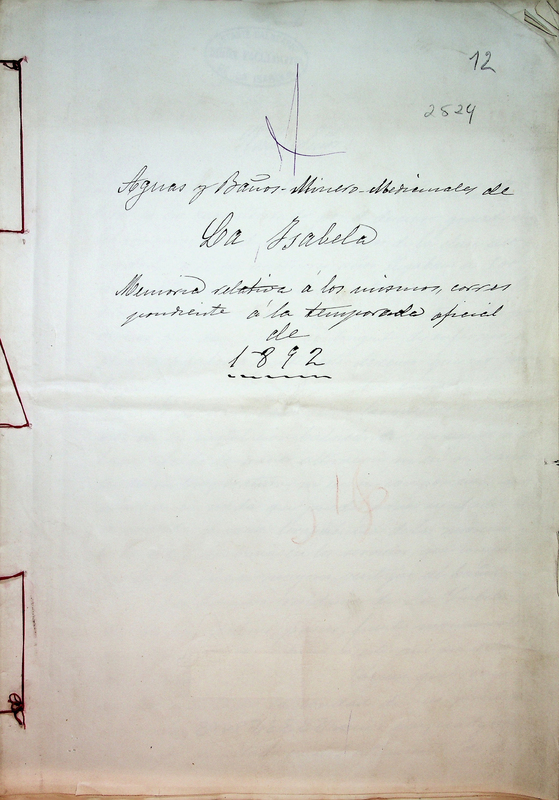 12
2524
Aguas y Baños-Minero-Medicinales de
La Isabela
Memoria relativa á los mismos, corres
pondiente á la temporada oficial
de
1892